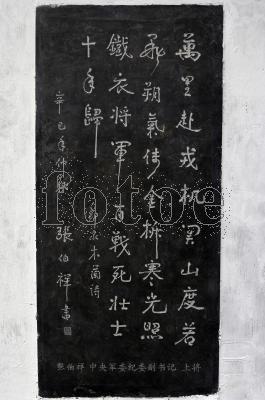 萬里赴戎机関山度若
飛朔氣传金柝寒光照
鐵衣将軍百戰死壮士
十年歸
录木蘭诗
辛巳年仲秋 張伯祥書
伯祥 中央军委纪委副书记 上将
fotoe